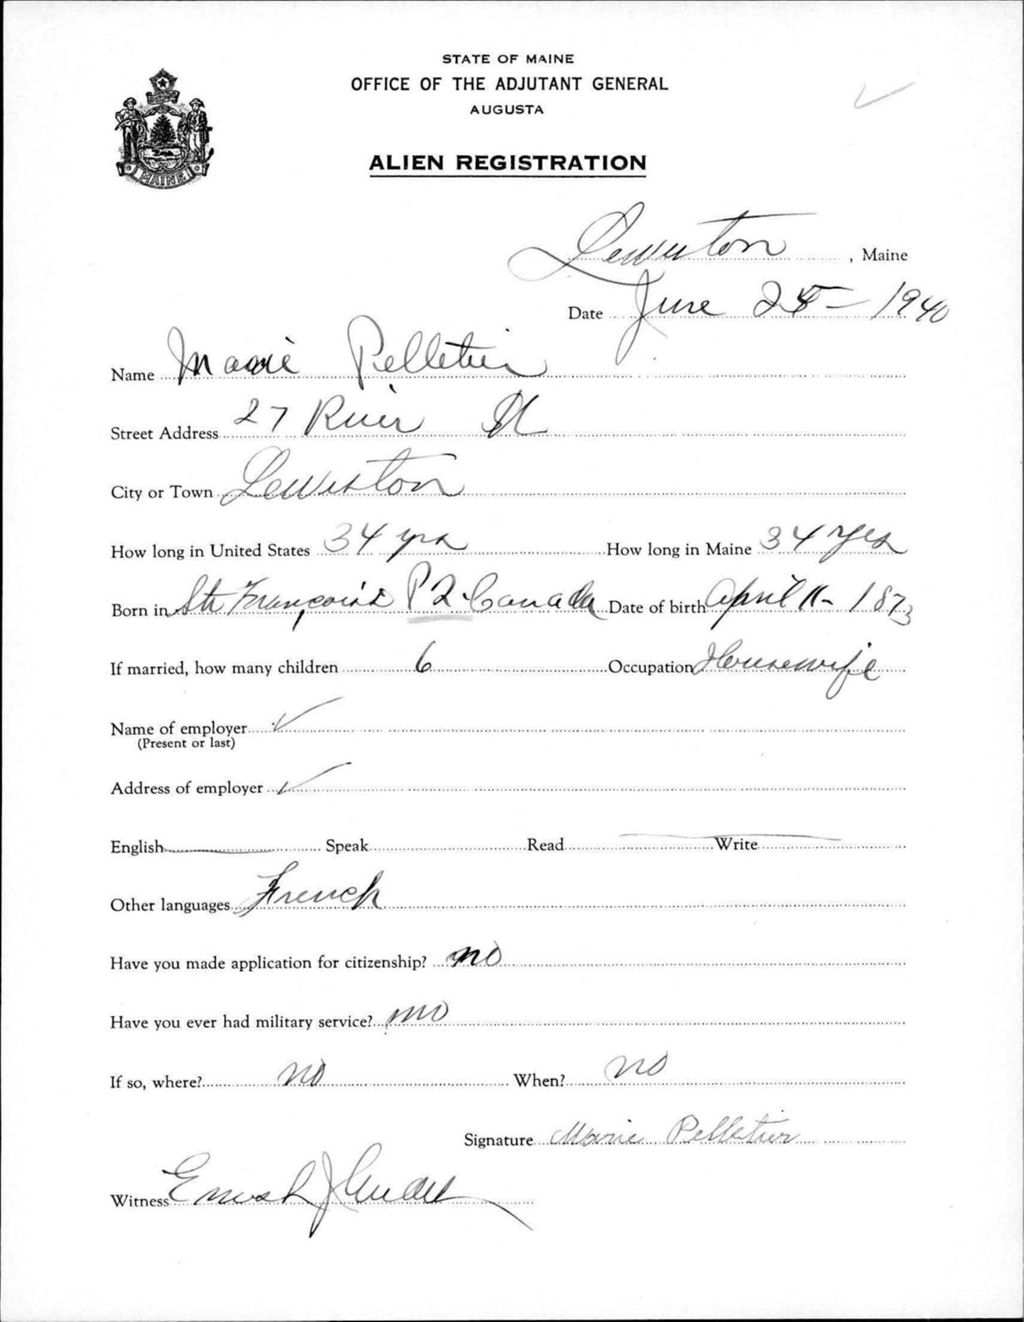 STATE OF MAINE
OFFICE OF THE ADJUTANT GENERAL
AUGUSTA
MAINE
ALIEN REGISTRATION
Lewiston, Maine
Date June 25 - 1940
Name Marie Pelletier
Street Address 27 River St
City or Town Lewiston
How long in United States 34 yrs How long in Maine 34 yrs
Born in St Francois P2. Canada Date of birth April 11 - 1873
If married, how many children 6 Occupation Housewife
Name of employer ✓
(Present or last)
Address of employer ✓
English Speak Read Write
Other languages French
Have you made application for citizenship? no
Have you ever had military service? no
If so, where? no When? no
Signature Marie Pelletier
Witness